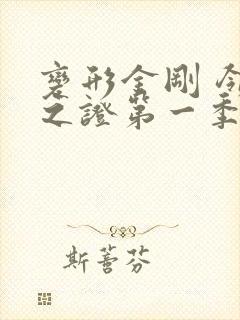 變形金剛
之證第一季
斯蕾芬